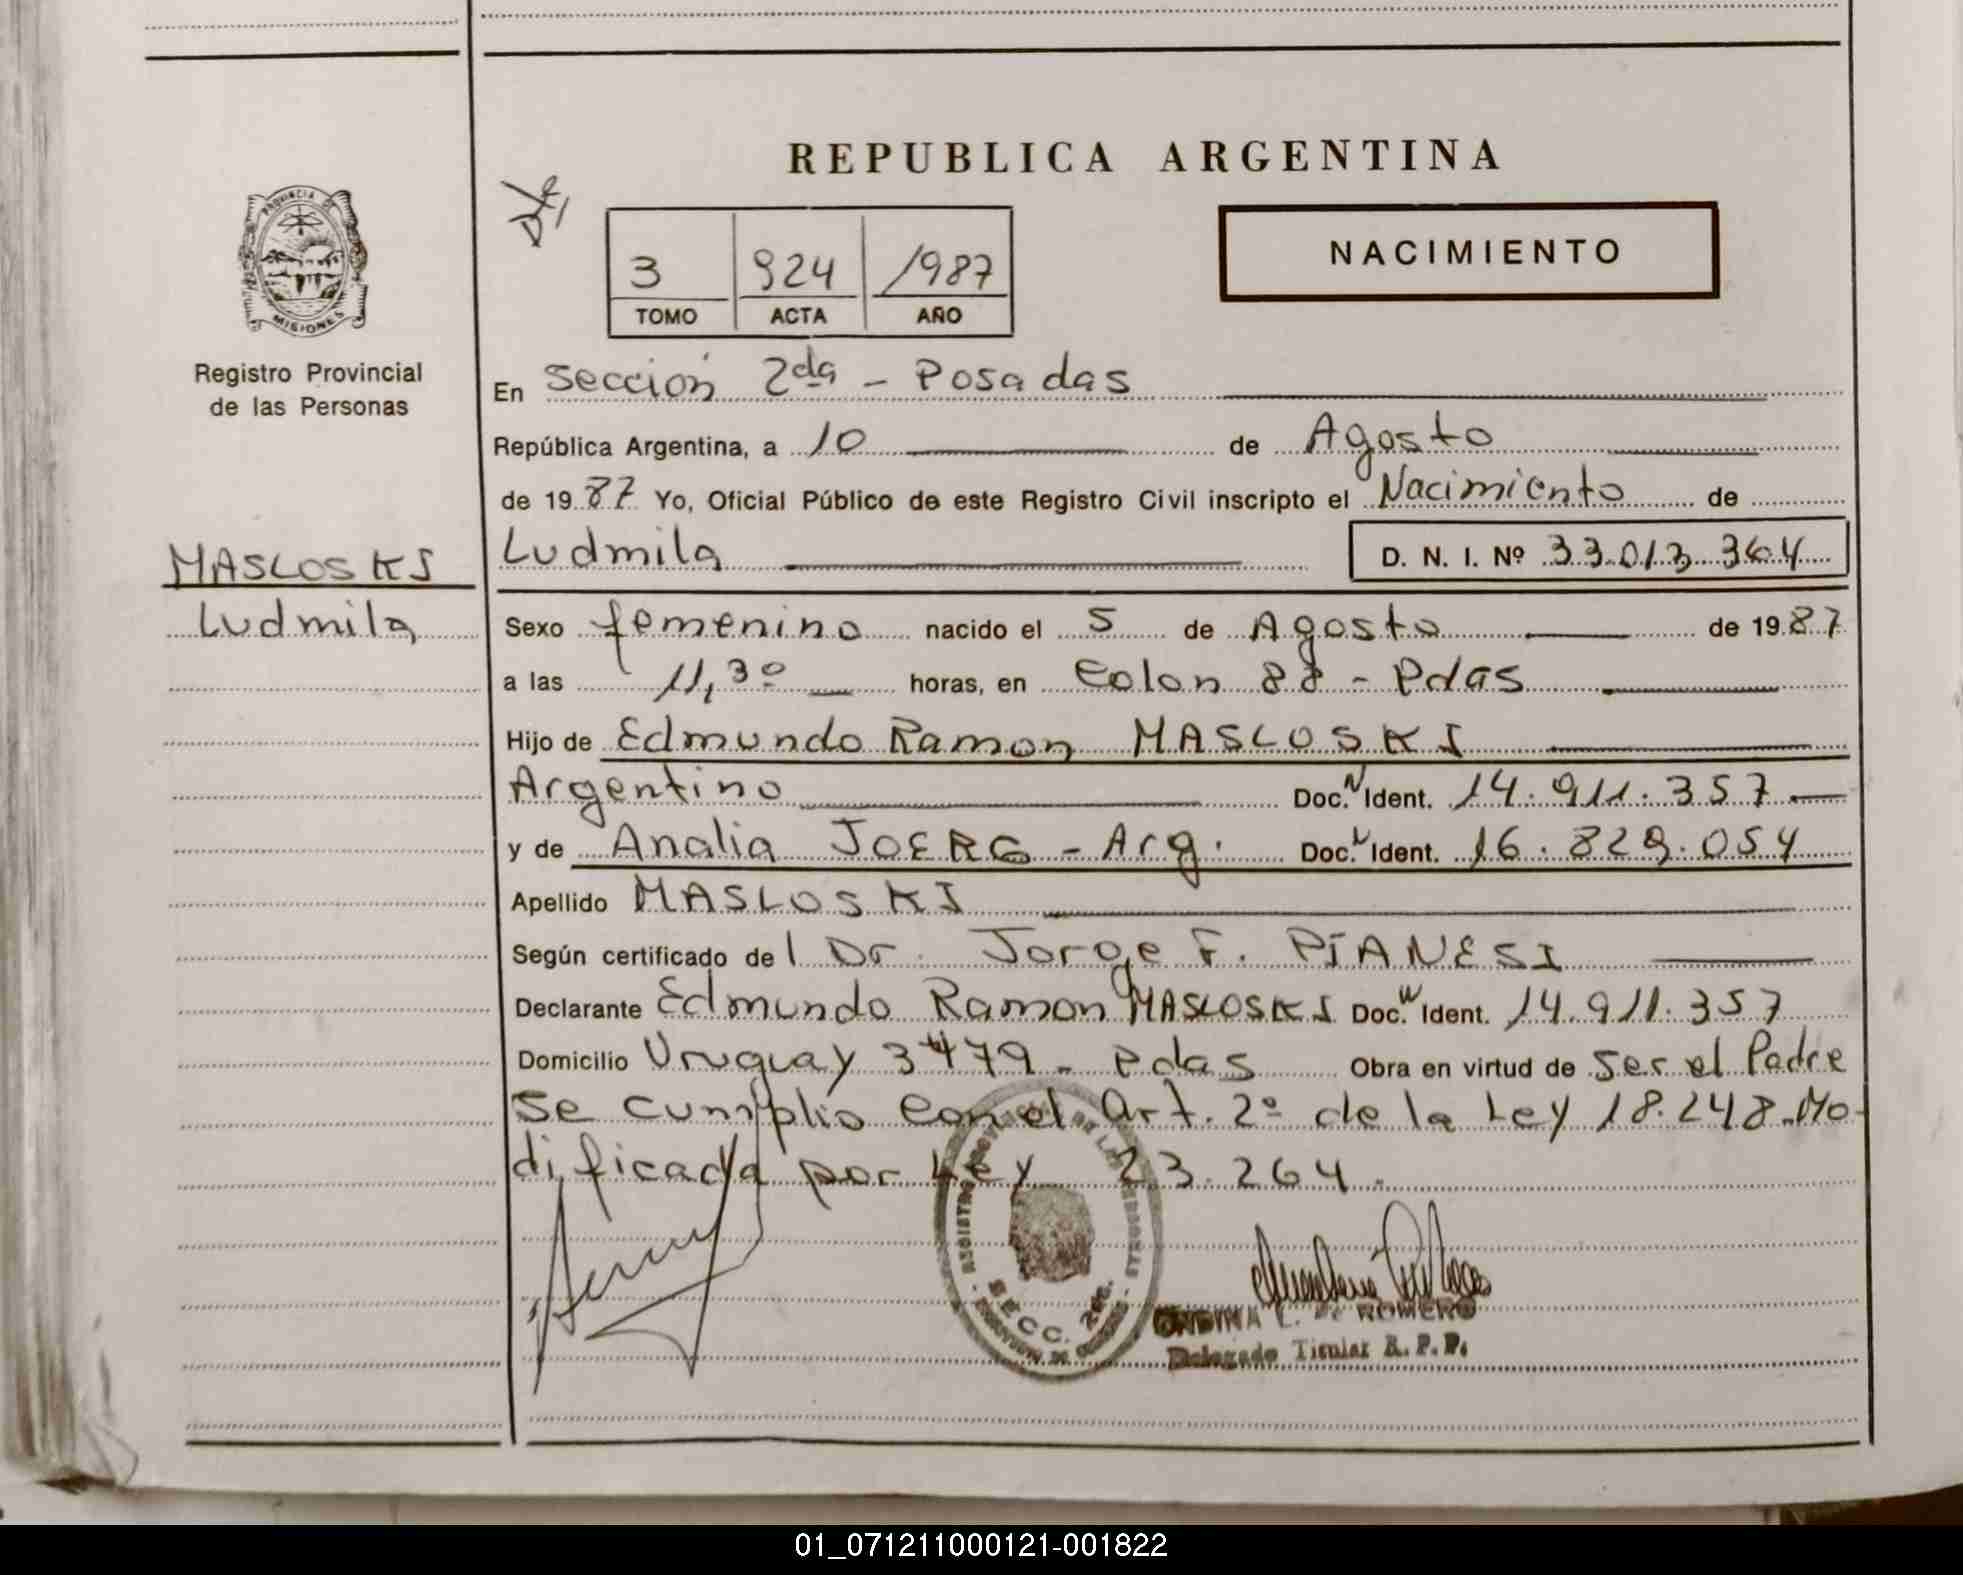 REPUBLICA ARGENTINA
PROVINCIA DE
MISIONES
Registro Provincial
de las Personas
3 924 1987
TOMO ACTA AÑO
NACIMIENTO
En Sección 2da - Posadas
República Argentina, a 10 de Agosto
de 1987 Yo, Oficial Público de este Registro Civil inscripto el Nacimiento de
MASLOSKI
Ludmila
Ludmila D. N. I. Nº 33.013.364
Sexo femenino nacido el 5 de Agosto de 1987
a las 11,30 horas, en Colon 88 - Pdas
Hijo de Edmundo Ramon MASLOSKI
Argentino Doc. N Ident. 14.911.357
y de Analia JOERG - Arg. Doc. Ident. 16.829.054
Apellido MASLOSKI
Según certificado del Dr. Jorge F. PIANESI
Declarante Edmundo Ramon MASLOSKI Doc. N Ident. 14.911.357
Domicilio Uruguay 3479 - Pdas Obra en virtud de Ser el Padre
Se cumplio con el Art. 2º de la Ley 18.248. Mo-
dificada por Ley 23.264.
SECC. 2da.
ONDINA L. de ROMERO
Delegado Titular R. P. P.
01_071211000121-001822